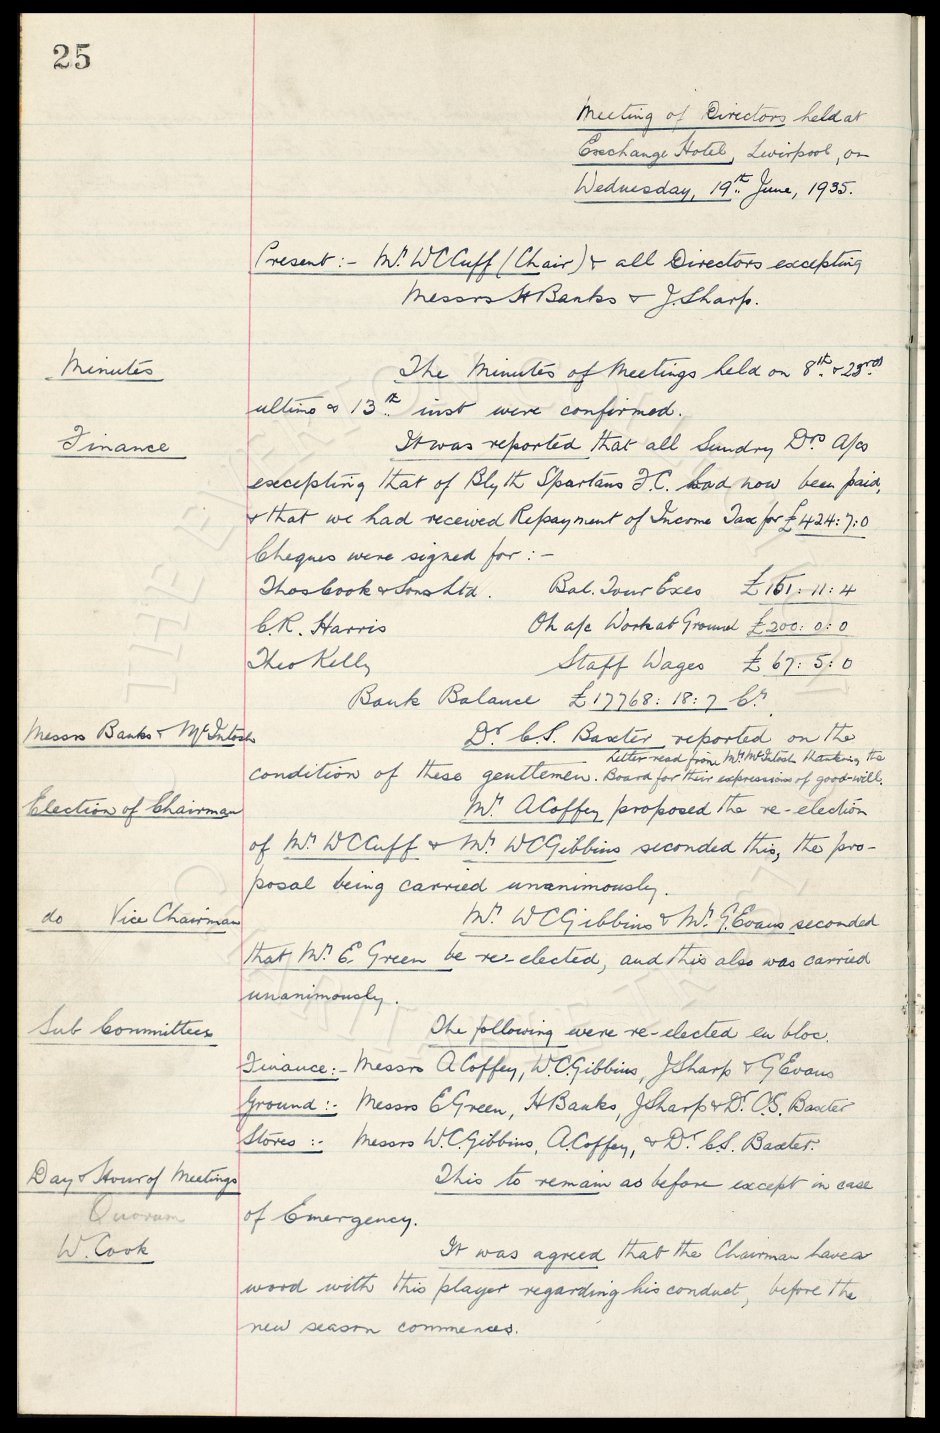 25
Meeting of Directors held at
Exchange Hotel, Liverpool, on
Wednesday, 19th June, 1935.
Present :- Mr. W C Cuff (Chair) & all Directors excepting
Messrs H Banks & J. Sharp.
Minutes The Minutes of Meetings held on 8th & 23rd
ultimo & 13th inst were confirmed.
Finance It was reported that all Sundry Drs A/cs
excepting that of Blyth Spartans F.C. had now been paid,
& that we had received Repayment of Income Tax for £424:7:0
Cheques were signed for :-
Thos Cook & Sons Ltd. Bal. Tour Exes £151:11:4
C.R. Harris On a/c Work at Ground £200:0:0
Theo Kelly Staff Wages £67:5:0
Bank Balance £17768:18:7 Cr.
Messrs Banks & McIntosh Dr. C.S. Baxter reported on the
Letter read from Mr McIntosh thanking the
condition of these gentlemen. Board for their expressions of good-will.
Election of Chairman Mr. A Coffey proposed the re-election
of Mr. W C Cuff & Mr. W C Gibbins seconded this, the pro-
posal being carried unanimously.
do Vice Chairman Mr. W C Gibbins & Mr. G. Evans seconded
that Mr. E. Green be re-elected, and this also was carried
unanimously.
Sub Committees The following were re-elected en bloc.
Finance :- Messrs A Coffey, W.C. Gibbins, J Sharp & G Evans
Ground :- Messrs E Green, H Banks, J Sharp & Dr. C.S. Baxter
Stores :- Messrs W.C. Gibbins, A. Coffey, & Dr. C.S. Baxter.
Day & Hour of Meetings This to remain as before except in case
Quorum of Emergency.
W. Cook It was agreed that the Chairman have a
word with this player regarding his conduct, before the
new season commences.